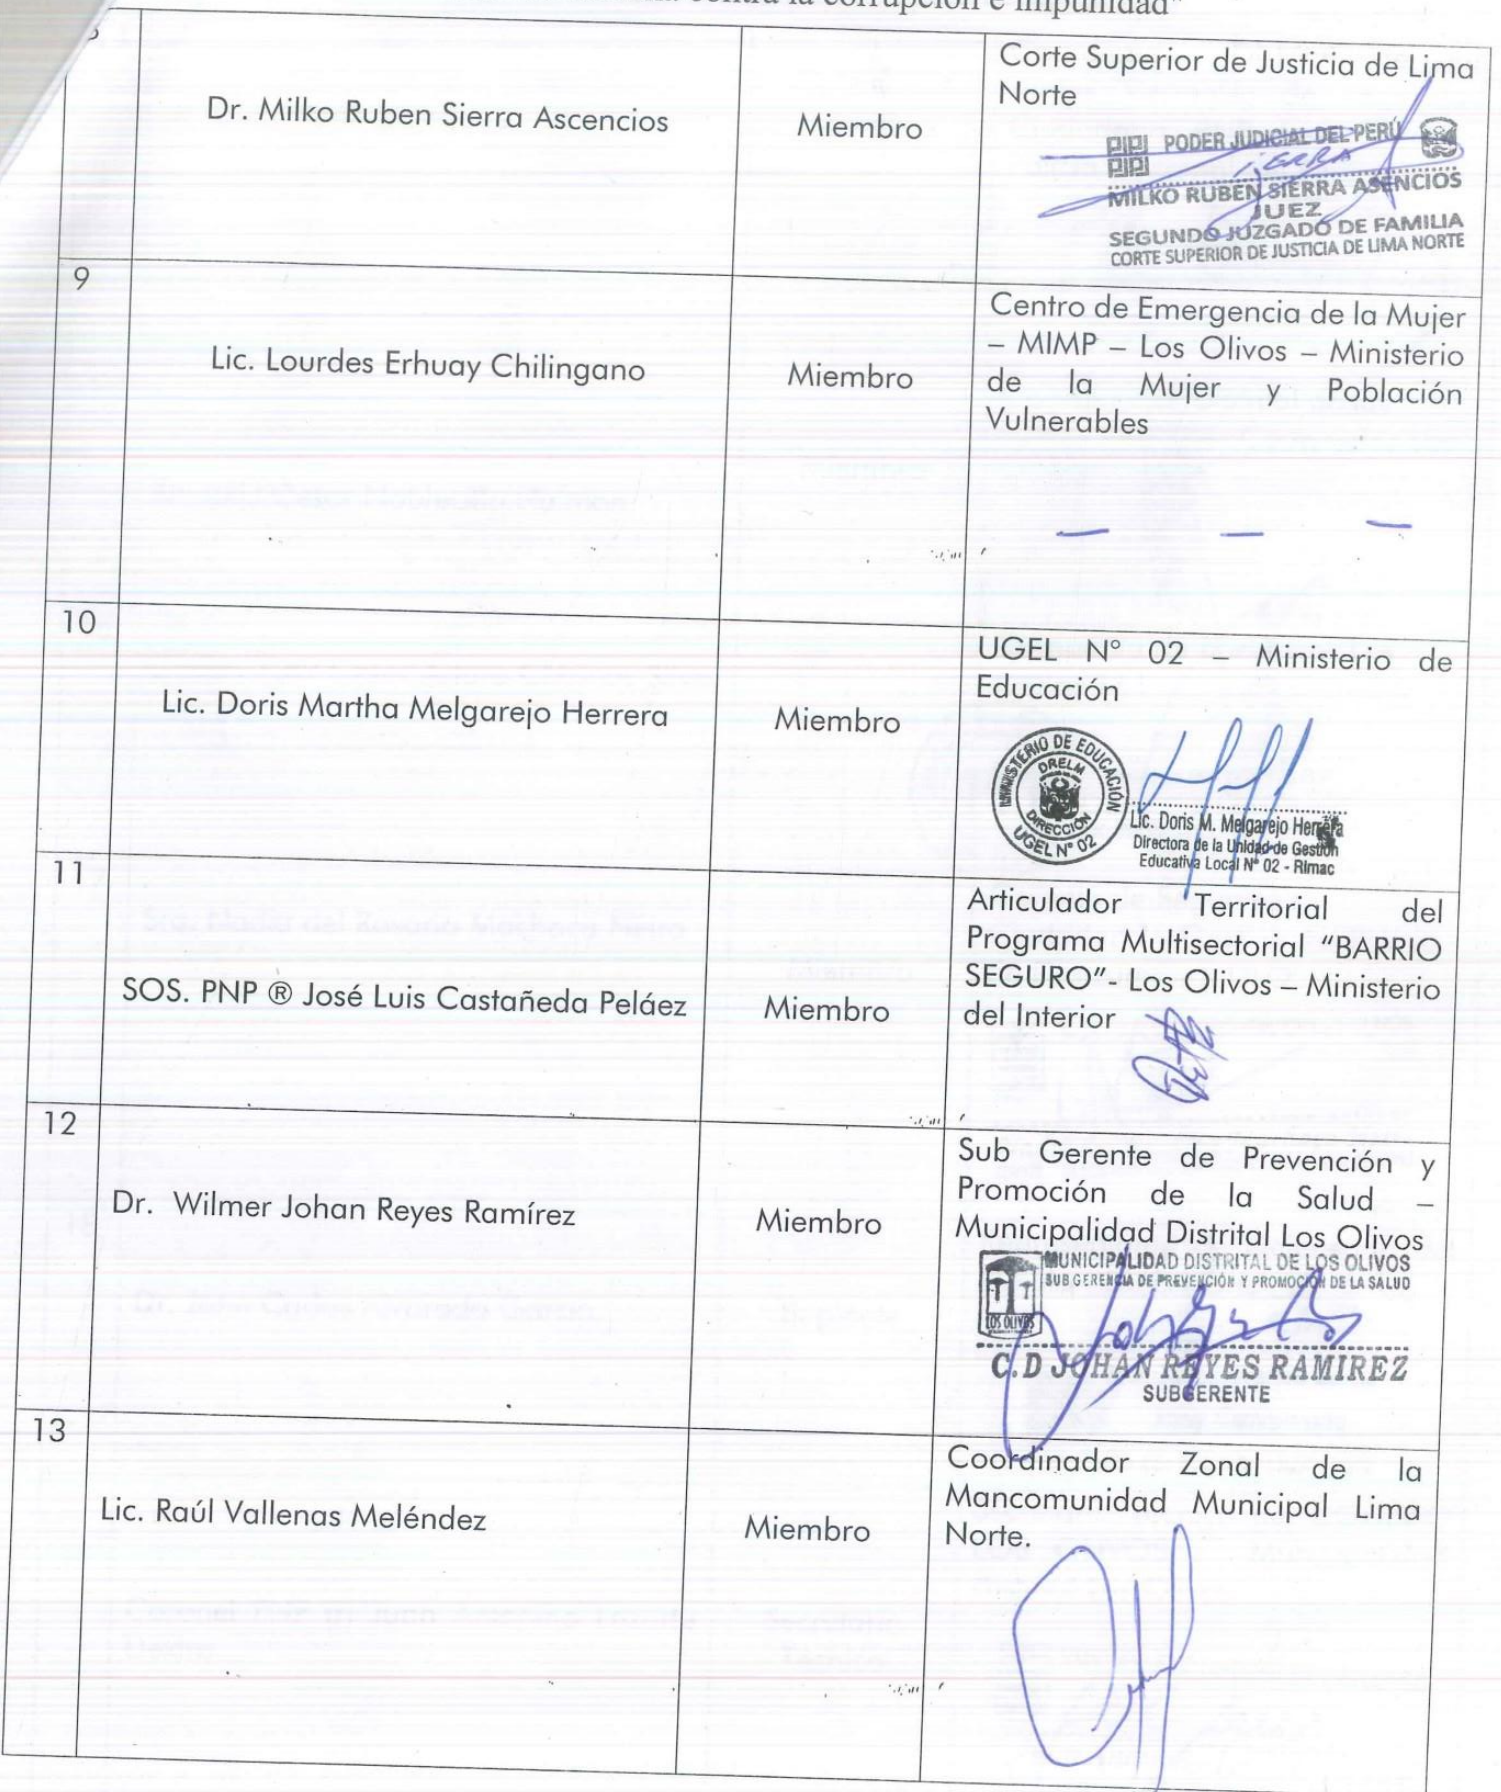 contra la corrupción e impunidad"
Dr. Milko Ruben Sierra Ascencios
Miembro
Corte Superior de Justicia de Lima
Norte
PODER JUDICIAL DEL PERÚ
MILKO RUBEN SIERRA ASENCIOS
JUEZ
SEGUNDO JUZGADO DE FAMILIA
CORTE SUPERIOR DE JUSTICIA DE LIMA NORTE
9
Lic. Lourdes Erhuay Chilingano
Miembro
Centro de Emergencia de la Mujer
– MIMP – Los Olivos – Ministerio
de la Mujer y Población
Vulnerables
10
Lic. Doris Martha Melgarejo Herrera
Miembro
UGEL N° 02 – Ministerio de
Educación
MINISTERIO DE EDUCACIÓN
DRELM
DIRECCIÓN
UGEL N° 02
Lic. Doris M. Melgarejo Herrera
Directora de la Unidad de Gestión
Educativa Local N° 02 - Rimac
11
SOS. PNP ® José Luis Castañeda Peláez
Miembro
Articulador Territorial del
Programa Multisectorial “BARRIO
SEGURO”- Los Olivos – Ministerio
del Interior
12
Dr. Wilmer Johan Reyes Ramírez
Miembro
Sub Gerente de Prevención y
Promoción de la Salud –
Municipalidad Distrital Los Olivos
MUNICIPALIDAD DISTRITAL DE LOS OLIVOS
SUB GERENCIA DE PREVENCIÓN Y PROMOCIÓN DE LA SALUD
LOS OLIVOS
C.D JOHAN REYES RAMIREZ
SUBGERENTE
13
Lic. Raúl Vallenas Meléndez
Miembro
Coordinador Zonal de la
Mancomunidad Municipal Lima
Norte.